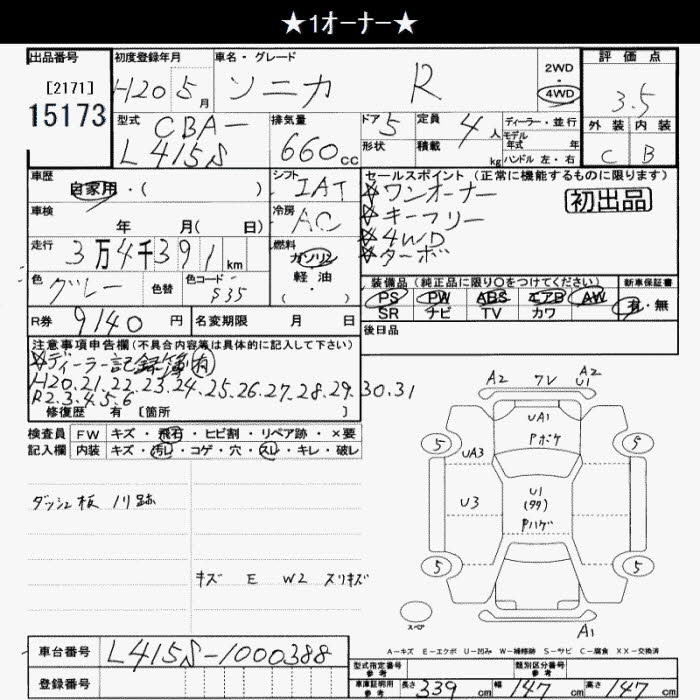 ★1オーナー★
出品番号 初度登録年月 車名・グレード 評価点
[2171] H20 5月 ソニカ R 2WD・4WD 3.5
15173
型式 CBA-L415S 排気量 660cc ドア 5 形状 定員 4人 積載 kg ディーラー・並行 モデル年式 年 ハンドル 左・右 外装 C 内装 B
車歴 自家用・( ) シフト IAT セールスポイント(正常に機能するものに限ります)
☆ワンオーナー 初出品
車検 年 月( 日) 冷房 AC ☆キーフリー
☆4WD
走行 3万4千391km 燃料 ガソリン・軽油・( ) ☆ターボ
色 グレー 色替 色コード S35 装備品(純正品に限り○をつけてください) 新車保証書
PS PW ABS エアB AW 有・無
SR ナビ TV カワ
R券 9140円 名変期限 月 日 後日品
注意事項申告欄(不具合内容等は具体的に記入して下さい)
☆ディーラー記録簿(有)
H20.21.22.23.24.25.26.27.28.29.30.31
R2.3.4.5.6
修復歴 有 [箇所 ]
検査員 FW キズ・飛石・ヒビ割・リペア跡・×要
記入欄 内装 キズ・汚レ・コゲ・穴・スレ・キレ・破レ
ダッシュ板 ノリ跡
キズ E W2 スリキズ
A2 フV A2 U1
UA1
Pボケ
5 5
UA3
U3 U1
(タタ)
Pハゲ
5 5
スペア A1
A-キズ E-エクボ U-凹み W-補修跡 S-サビ C-腐食 XX-交換済
車台番号 L415S-1000388
型式指定番号 参考 類別区分番号 参考
登録番号 車庫証明用 参考 長さ 339cm 幅 147cm 高さ 147cm